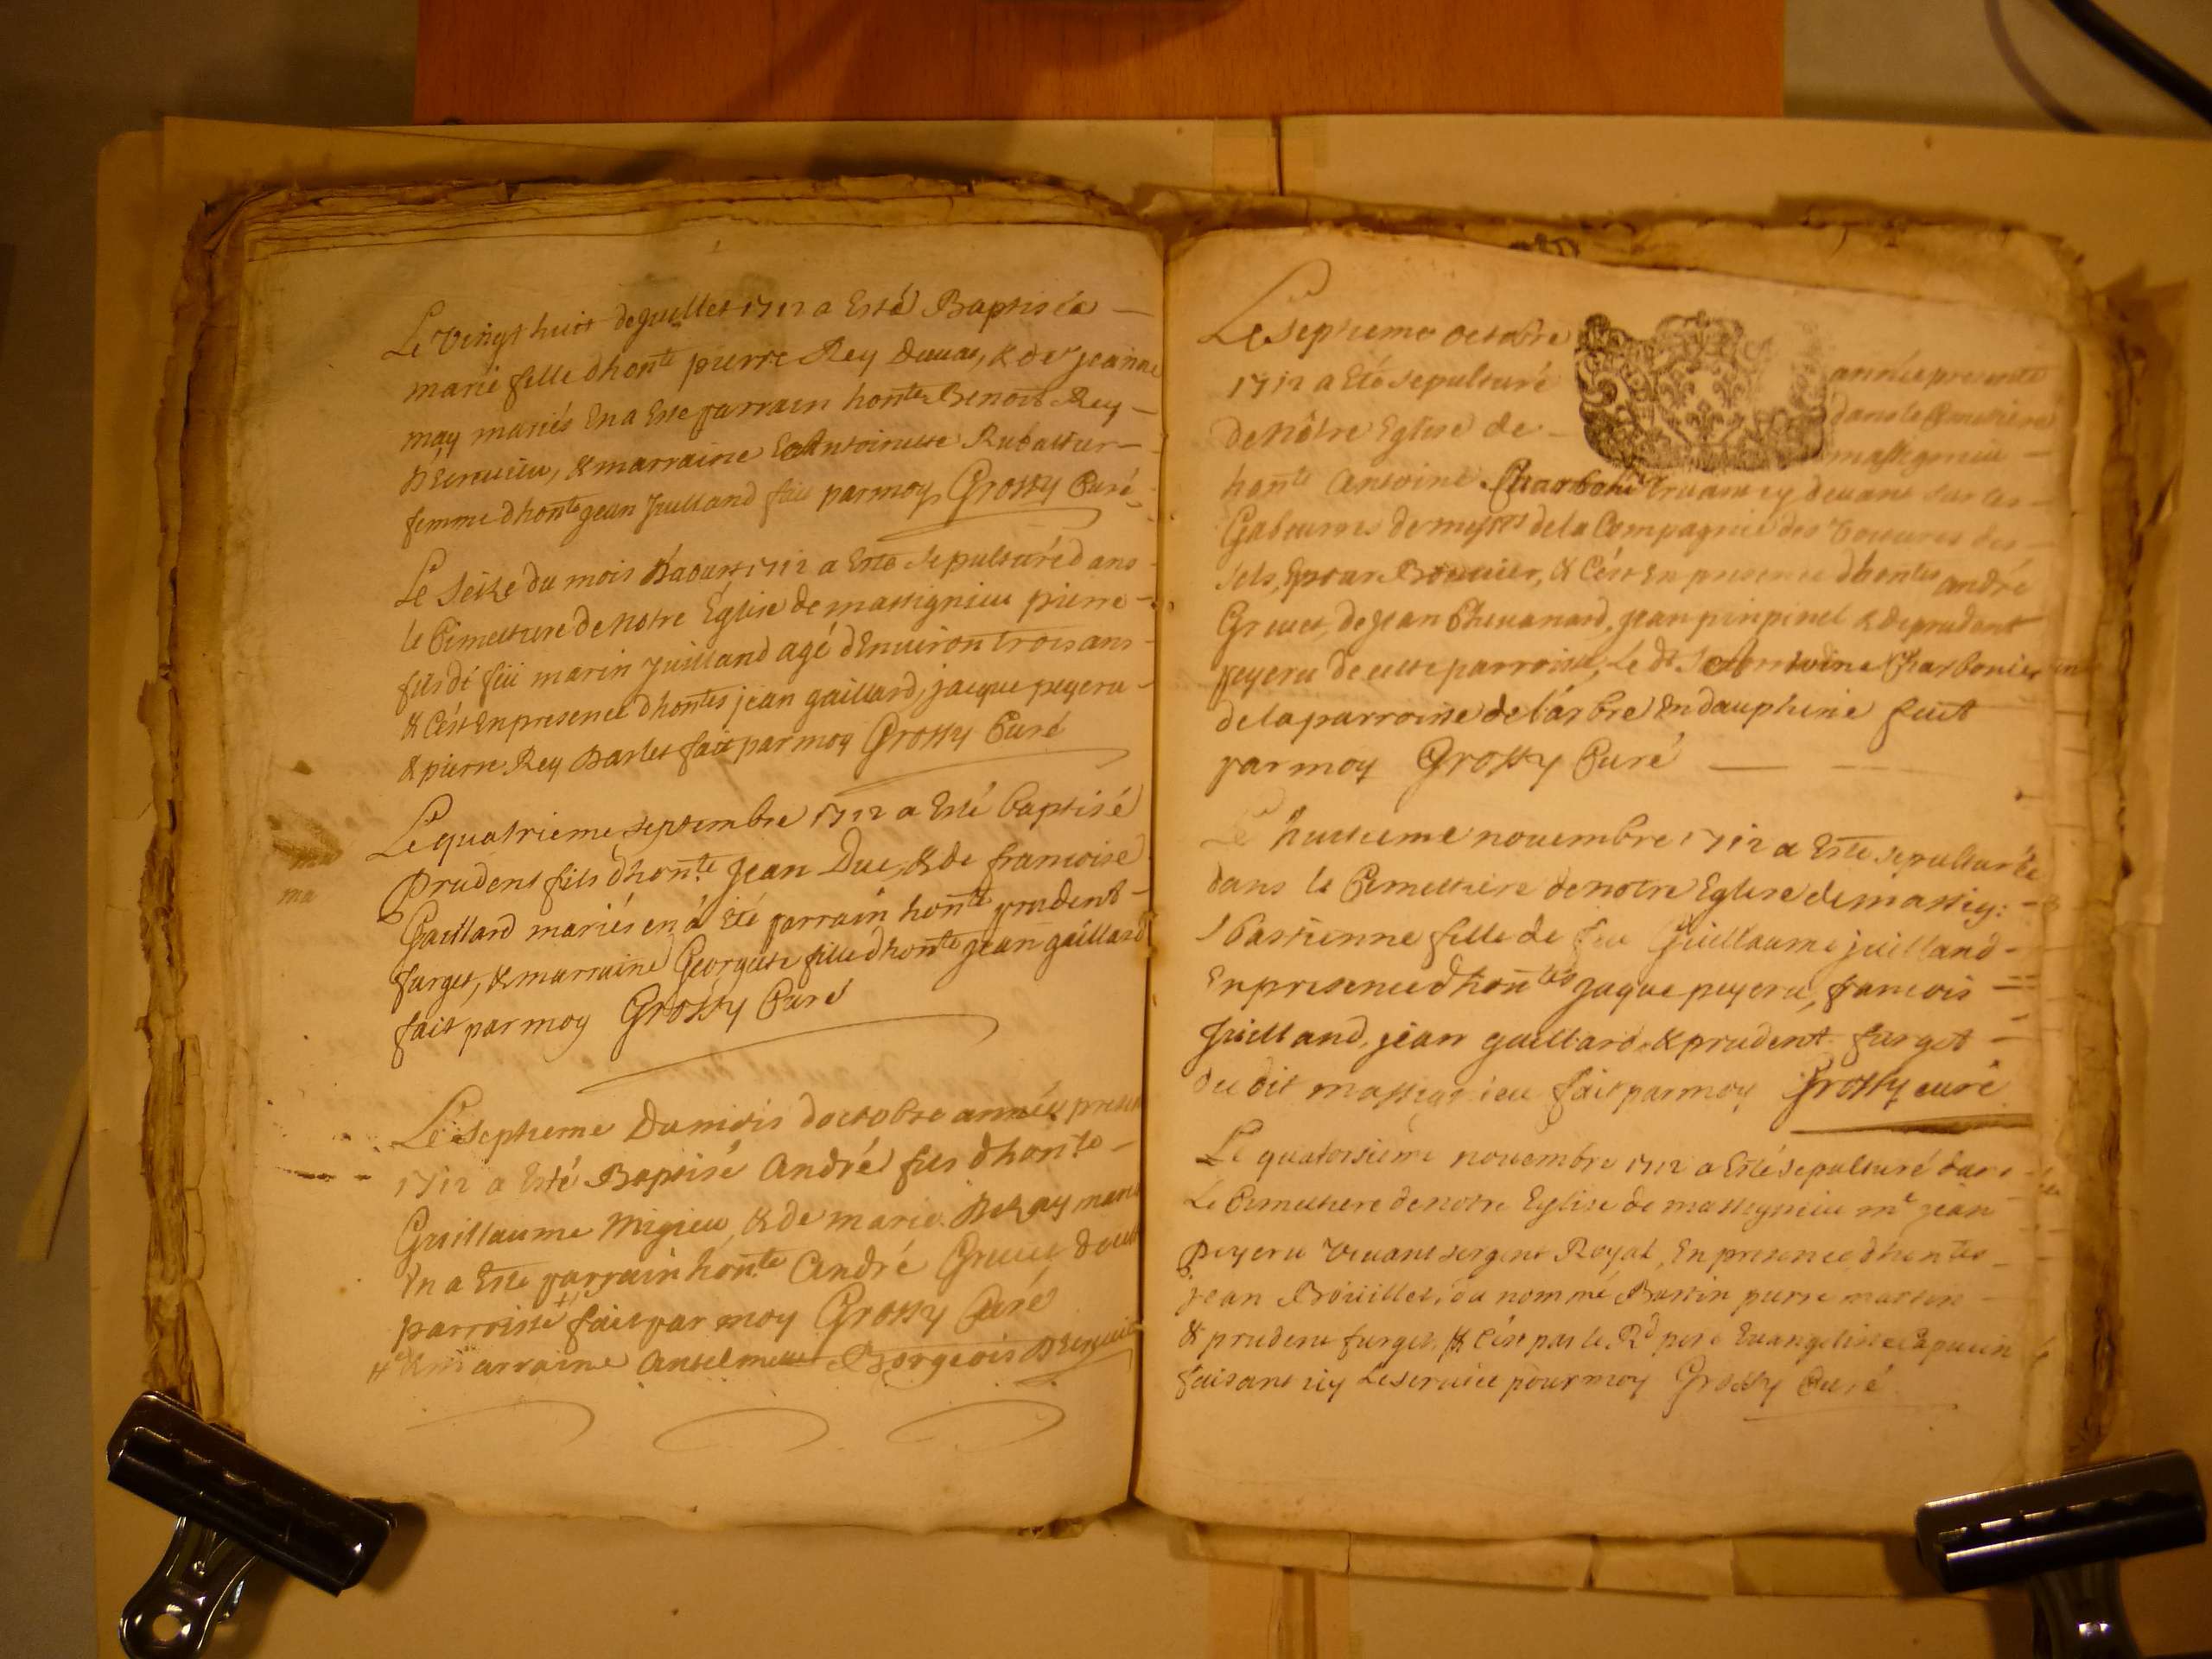 Le vingt huit de juillet 1712 a Esté Baptisée
marie fille dhonte pierre Rey Duuac, & de jeanne
may mariés En a Esté parrain honte Benoit Rey
& marraine Antoinette
femme dhonte jean Juilland fait par moy Grossy Curé
Le seize du mois d'aoust 1712 a Esté sepulturé dans
le Cimettiere de notre Église de massignieu pierre
fils de feü marin juilland agé d'Enuiron trois ans
& C'est En presence dhontes jean gaillard, jacque peyeru
& pierre Rey Barlet fait par moy Grossy Curé
Le quatrieme septembre 1712 a Esté baptisé
Prudent fils dhonte Jean Duc, & de francoise
Gaillard mariés en á Eté parrain honte prudent
furget, & marraine Georgette fille dhonte jean gaillard
fait par moy Grossy Curé
ma
ma
Le septieme Du mois doctobre année
1712 a Esté Baptisé André fils dhonte
Guillaume Migieu, & de marie
En a Esté parrain honte André Gruet
parroisse fait par moy Grossy Curé
& marraine Antelmette Borgeois
Le septieme octobre année presente
1712 a Eté sepulturé dans le Cimetiere
de nôtre Eglise de massignieu
honte Antoine Charbonie viuant cy deuant sur les
Gabeurns de messrs de la Compagnie des
sels, pour Bouuier, & C'est En presence dhontes André
Gruet, de jean Cheuanard, jean pinpinel & de prudent
peyeru de cette parroisse, Le dt Sr Antoine Charbonier
de la parroisse de l'arbre En dauphine fait
par moy Grossy Curé
Le huitieme nouembre 1712 a Esté sepulturée
dans le Cimettiere de notre Eglise de massig:
sbastienne fille de feu Guillaume juilland
En presence dhontes jaque peyeru, francois
Juilland, jean gaillard & prudent furget
du dit massignieu fait par moy Grossy curé
Le quatorsieme nouembre 1712 a Esté sepulturé dans
Le Cimettiere de notre Eglise de massignieu me jean
peyeru viuant sergent Royal, En presence dhontes
jean Boüillet, du nommé pierre martin
& prudent furget, & C'est par le Rd pere Euangeliste Capucin
faisant icy Le seruice pour moy Grossy Curé